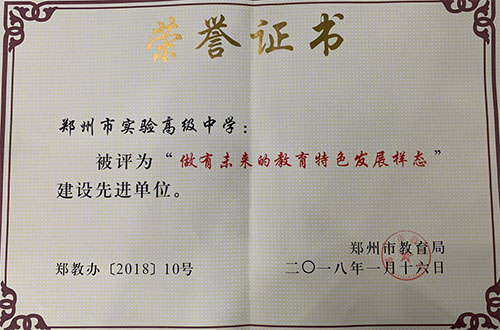 荣誉证书
郑州市实验高级中学：
被评为“做有未来的教育特色发展样态”
建设先进单位。
郑州市教育局
郑教办〔2018〕10号
二〇一八年一月十六日